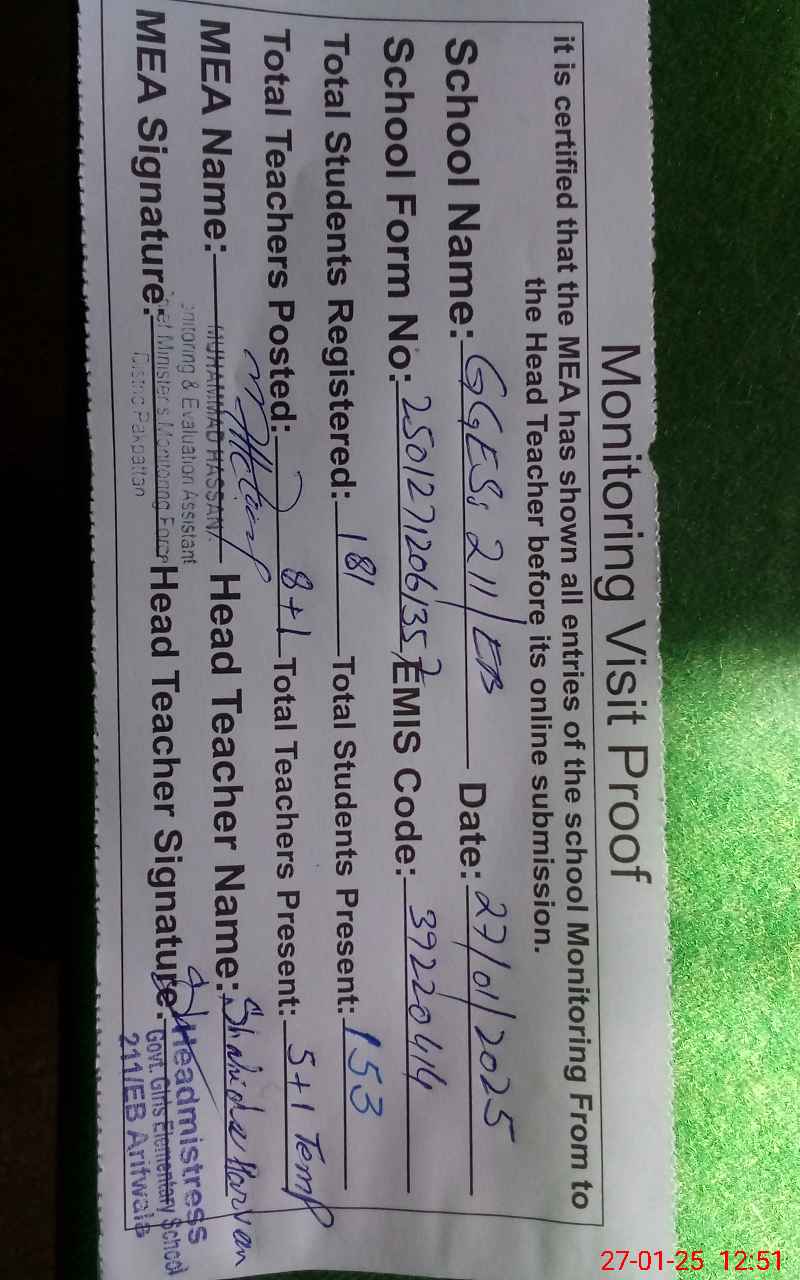 Monitoring Visit Proof
it is certified that the MEA has shown all entries of the school Monitoring From to
the Head Teacher before its online submission.
School Name: GGES, 211/EB Date: 27/01/2025
School Form No: EMIS Code: 39220414
Total Students Registered: 181 Total Students Present: 153
Total Teachers Posted: 8+1 Total Teachers Present: 5+1 Temp
MEA Name: MUHAMMAD HASSAN Head Teacher Name: Shahida
Monitoring & Evaluation Assistant
MEA Signature: Head Teacher Signature:
Chief Minister's Monitoring Force
District Pakpattan
Headmistress
Govt. Girls Elementary School
211/EB Arifwala
27-01-25 12:51